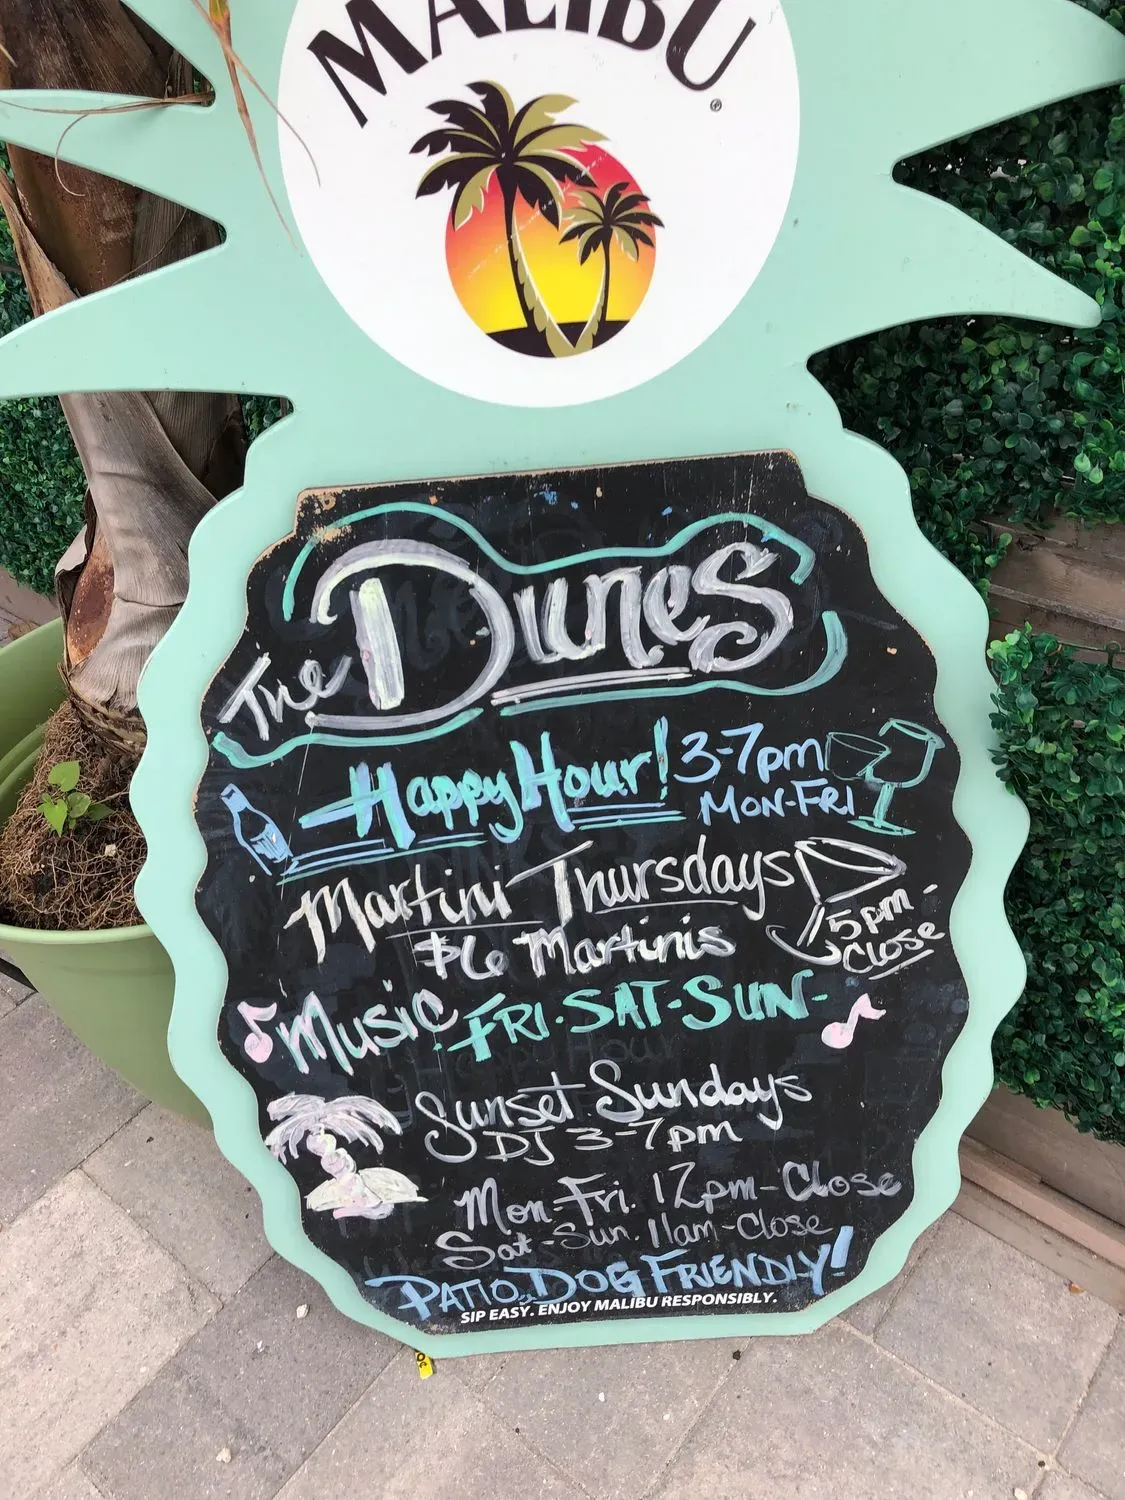 MALIBU
®
The Dunes
Happy Hour! 3-7pm
MON-FRI
Martini Thursdays
$6 Martinis
5pm-
Close
Music FRI·SAT·SUN-
Sunset Sundays
DJ 3-7pm
Mon-Fri. 12pm-Close
Sat-Sun. 11am-Close
PATIO DOG FRIENDLY!
SIP EASY. ENJOY MALIBU RESPONSIBLY.